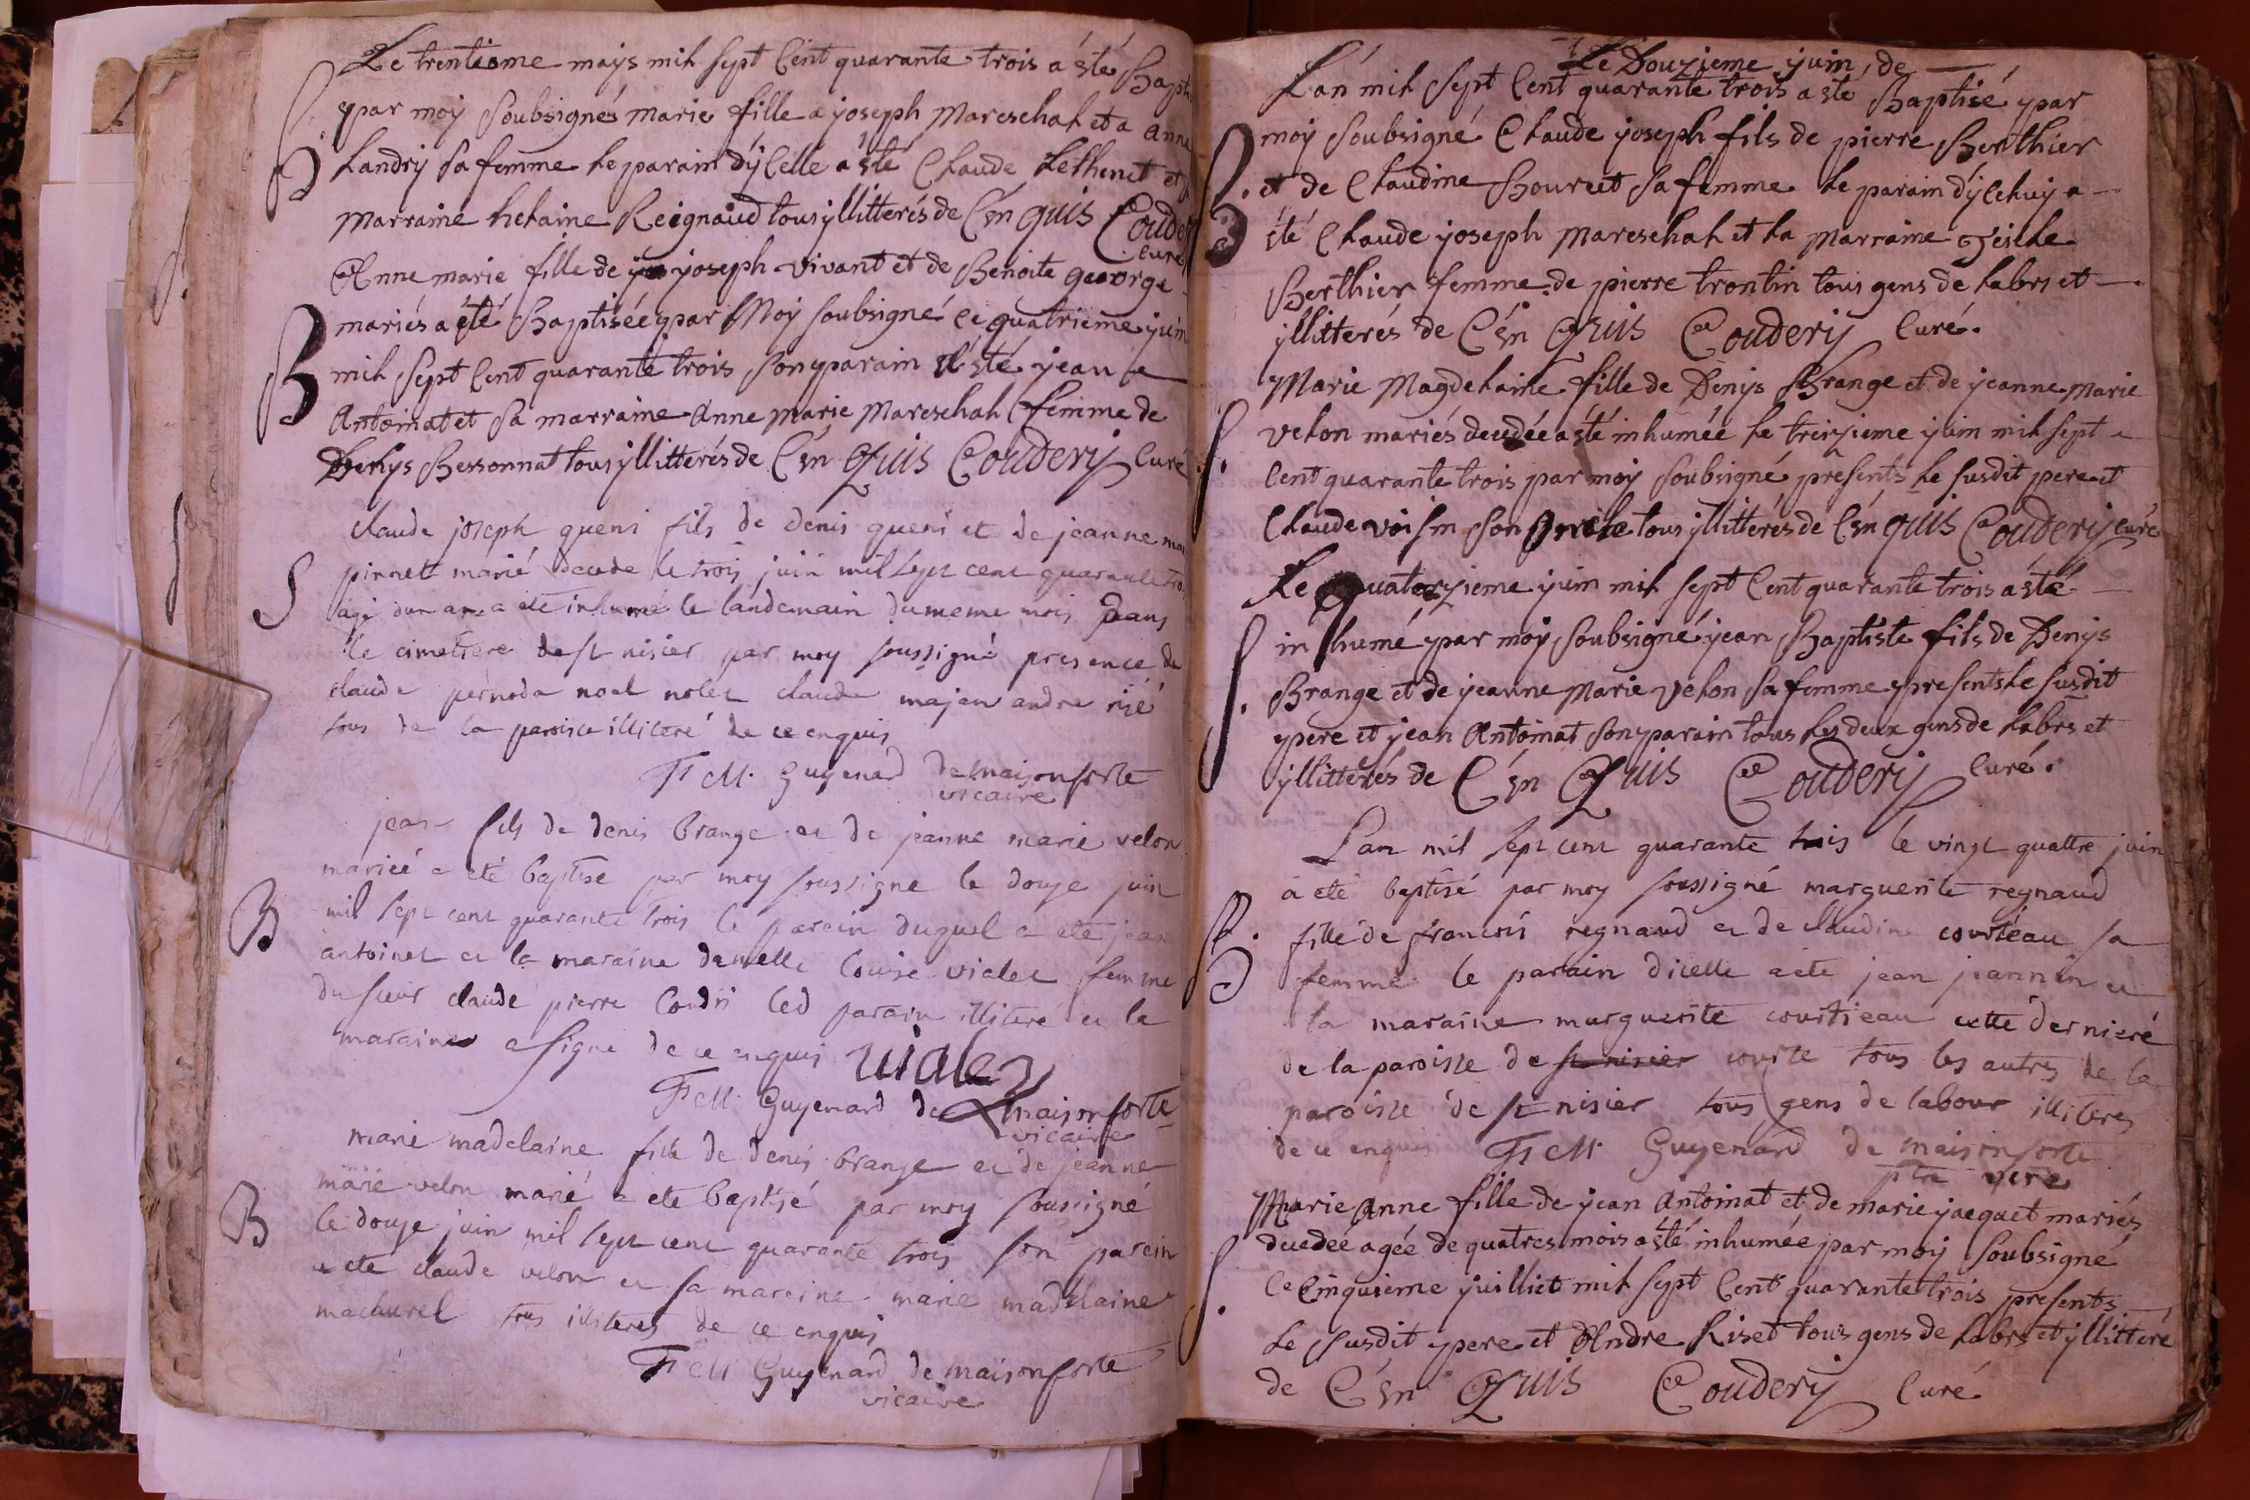 Le trentieme mays mil sept Cent quarante trois a été Bapt
B par moy soubsignés marie fille a joseph Mareschal et a anne
Landry sa femme le parain dÿCelle a été Claude Lethenet et
marraine helaine Reignaud tous yllitterés de Cén quis Coudery
Curé
Anne marie fille de joseph vivant et de Benoite george
B mariés a été Baptisée par Moy soubsigné le quatrieme juin
mil sept Cent quarante trois son parain a été jean
Antoinat et sa marraine Anne marie Mareschal femme de
Denys Bessonnat tous yllitterés de Cén Quis Coudery Curé
Claude joseph queni fils de denis queni et de jeanne mar
S pirnet marié decede le trois juin mil sept cent quarante tro
agé dun an a eté inhumé le landemain du meme mois dans
le cimetiere de st nisier par moy soussigné presence de
claude pernoda noel nolet claude majeu andre risé
tous de la paroisce illiteré de ce enquis
F cM. Guyenard de maisonforte
vicaire
jean fils de denis brange et de jeanne marie velon
marieé a eté baptisé par moy soussigne le douze juin
B mil sept cent quarante trois le parein duquel a eté jean
antoinet et la maraine demelle louise vialet femme
du sieur claude pierre Coudri led parain illiteré et la
maraine a signe de ce enquis vialet
F cM. Guyenard de maisonforte
vicaire
marie madelaine fille de denis brange et de jeanne
marie velon marié a eté baptisé par moy soussigné
B le douze juin mil sept cent quarante trois son parein
a ete claude velon et sa mareine marie madelaine
machurel tous illiteres de ce enquis
F cM Guyenard de maisonforte
vicaire
Le Douzieme juin, de
L'an mil sept Cent quarante trois a été Baptisé par
moy soubsigné Claude joseph fils de pierre Berthier
B. et de Claudine Bourcet sa femme le parain dÿCeluy a
été Claude joseph Mareschal et la Marraine
Berthier femme de pierre trontin tous gens de labrs et
yllitterés de Cén Quis Coudery Curé.
Marie Magdelaine fille de Denys Brange et de jeanne Marie
S. velon mariés decedée a été inhumée le treizieme juin mil sept
Cent quarante trois par moy soubsigné présents le susdit pere et
Claude voisin son oncle tous yllitterés de Cén quis Coudery curé
Le quatorzieme juin mil sept Cent quarante trois a été
S. inhumé par moy soubsigné jean Baptiste fils de Denys
Brange et de jeanne Marie velon sa femme presents le susdit
pere et jean Antoinat son parain tous les deux gens de labrs et
yllitterés de Cén Quis Coudery Curé.
L'an mil sept cent quarante trois le vingt quattre juin
a eté baptisé par moy soussigné marguerite regnaud
B. fille de francois regnaud et de claudine courteau sa
femme le parain dicelle a ete jean jeannin et
la maraine marguerite courtieau cette derniere
de la paroisse de st nisier courte tous les autres de la
paroisse de st nisier tous gens de labour illiteres
de ce enquis F cM. Guyenard de maisonforte
ptre vere
Marie Anne fille de jean Antoinat et de marie jacquet mariés
S. decedée agée de quatres mois a été inhumée par moy soubsigné
le Cinquieme juilliet mil sept Cent quarante trois presents
Le susdit pere et Andre Riset tous gens de labrs et yllitteré
de Cén Quis Coudery Curé